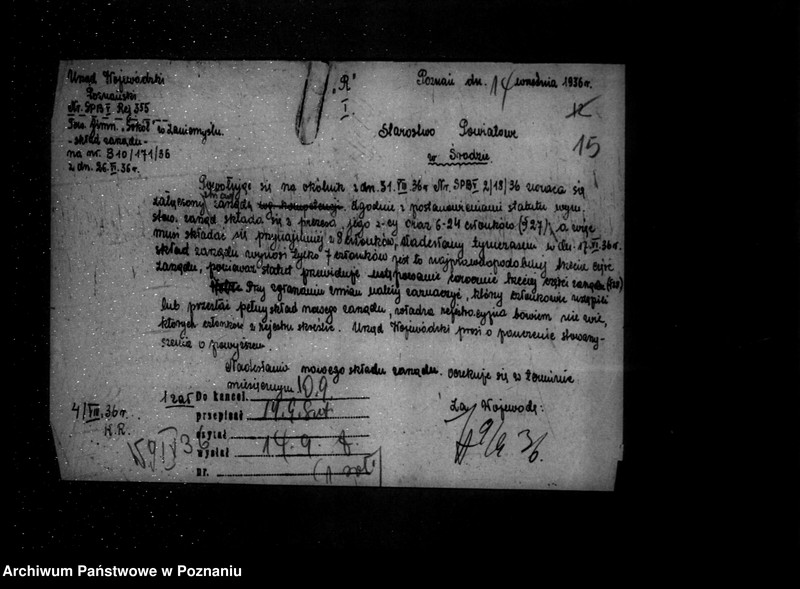 Urząd Wojewódzki
Poznański
Nr. SPB I Rej 355
Tow. Gimn. "Sokół" w Zaniemyślu
- skład zarządu -
na nr. B 10/171/36
z dn. 26. 36 r.
"R"
I
Poznań dn. 14 września 1936 r.
15
Starostwo Powiatowe
w Środzie
Powołując się na okólnik z dn. 31. 36r Nr. SPB 2/18/36 zwraca się
załączony zarządu zgodnie z postanowieniami statutu wym.
stow. zarząd składa się z prezesa, jego z-cy oraz 6-24 członków (§ 27), a więc
musi składać się przynajmniej z 8 członków. Nadesłany tymczasem w dn. 17. 36r.
skład zarządu wynosi tylko 7 członków jest to najprawdopodobniej trzecia część
zarządu, ponieważ statut przewiduje ustępowanie corocznie trzeciej części zarządu
Przy zgłaszaniu zmian należy zaznaczyć, którzy członkowie ustąpili
lub przesłać pełny skład nowego zarządu, władza rejestracyjna bowiem nie wie,
których członków z rejestru skreślić. Urząd Wojewódzki prosi o pouczenie stowarzy-
szenia o powyższem.
Nadesłania nowego składu zarządu oczekuje się w terminie
miesięcznym
1 zał
Do kancel. 10.9
przepisał 14.9
czytał
wysłał 14.9
nr.
4/VIII. 36 r.
K.R.
Za Wojewodę:
9/9 36.
Archiwum Państwowe w Poznaniu